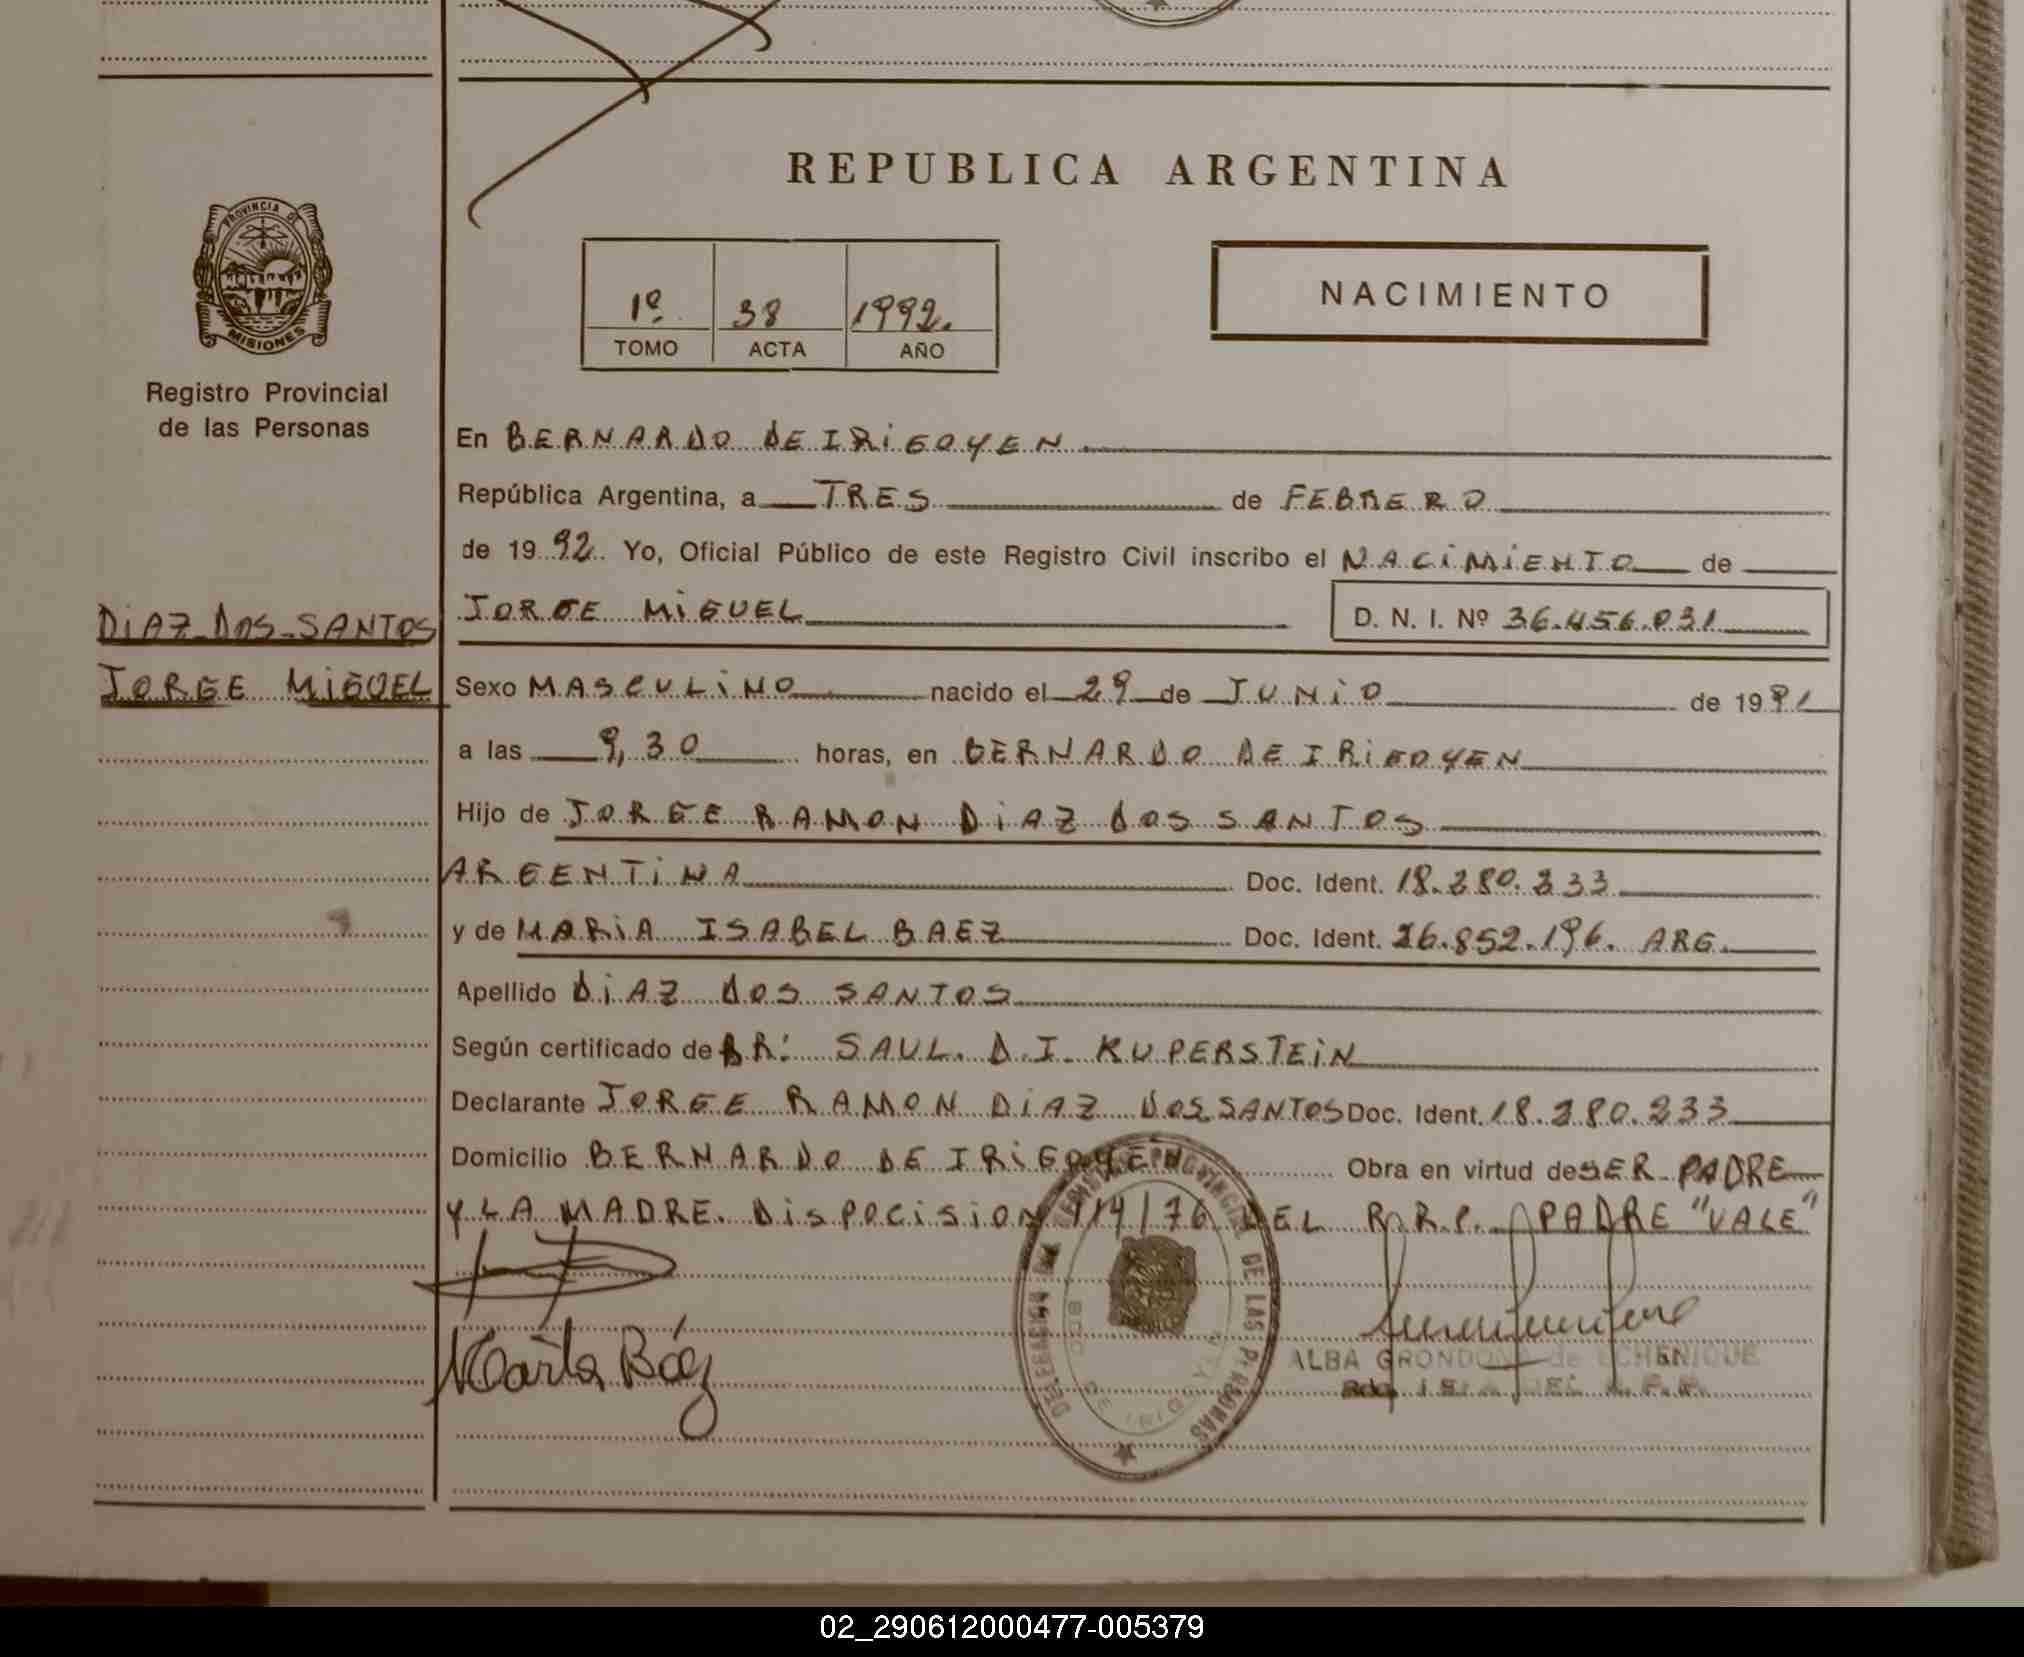 REPUBLICA ARGENTINA
PROVINCIA DE
MISIONES
Registro Provincial
de las Personas
1º 38 1992.
TOMO ACTA AÑO
NACIMIENTO
En BERNARDO DE IRIGOYEN
República Argentina, a TRES de FEBRERO
de 1992 Yo, Oficial Público de este Registro Civil inscribo el NACIMIENTO de
DIAZ DOS SANTOS
JORGE MIGUEL
JORGE MIGUEL D. N. I. Nº 36.456.031
Sexo MASCULINO nacido el 29 de JUNIO de 1991
a las 9,30 horas, en BERNARDO DE IRIGOYEN
Hijo de JORGE RAMON DIAZ DOS SANTOS
ARGENTINA Doc. Ident. 18.280.233
y de MARIA ISABEL BAEZ Doc. Ident. 26.852.196. ARG.
Apellido DIAZ DOS SANTOS
Según certificado de DR: SAUL. D. I. KUPERSTEIN
Declarante JORGE RAMON DIAZ DOS SANTOS Doc. Ident. 18.280.233
Domicilio BERNARDO DE IRIGOYEN Obra en virtud de SER PADRE
Y LA MADRE. DISPOCISION 114/76 DEL R.R.P. PADRE "VALE"
DELEGACION DEL REGISTRO PROVINCIAL DE LAS PERSONAS
BDO. DE IRIGOYEN
María Báez
ALBA GRONDONA de ECHENIQUE
02_290612000477-005379